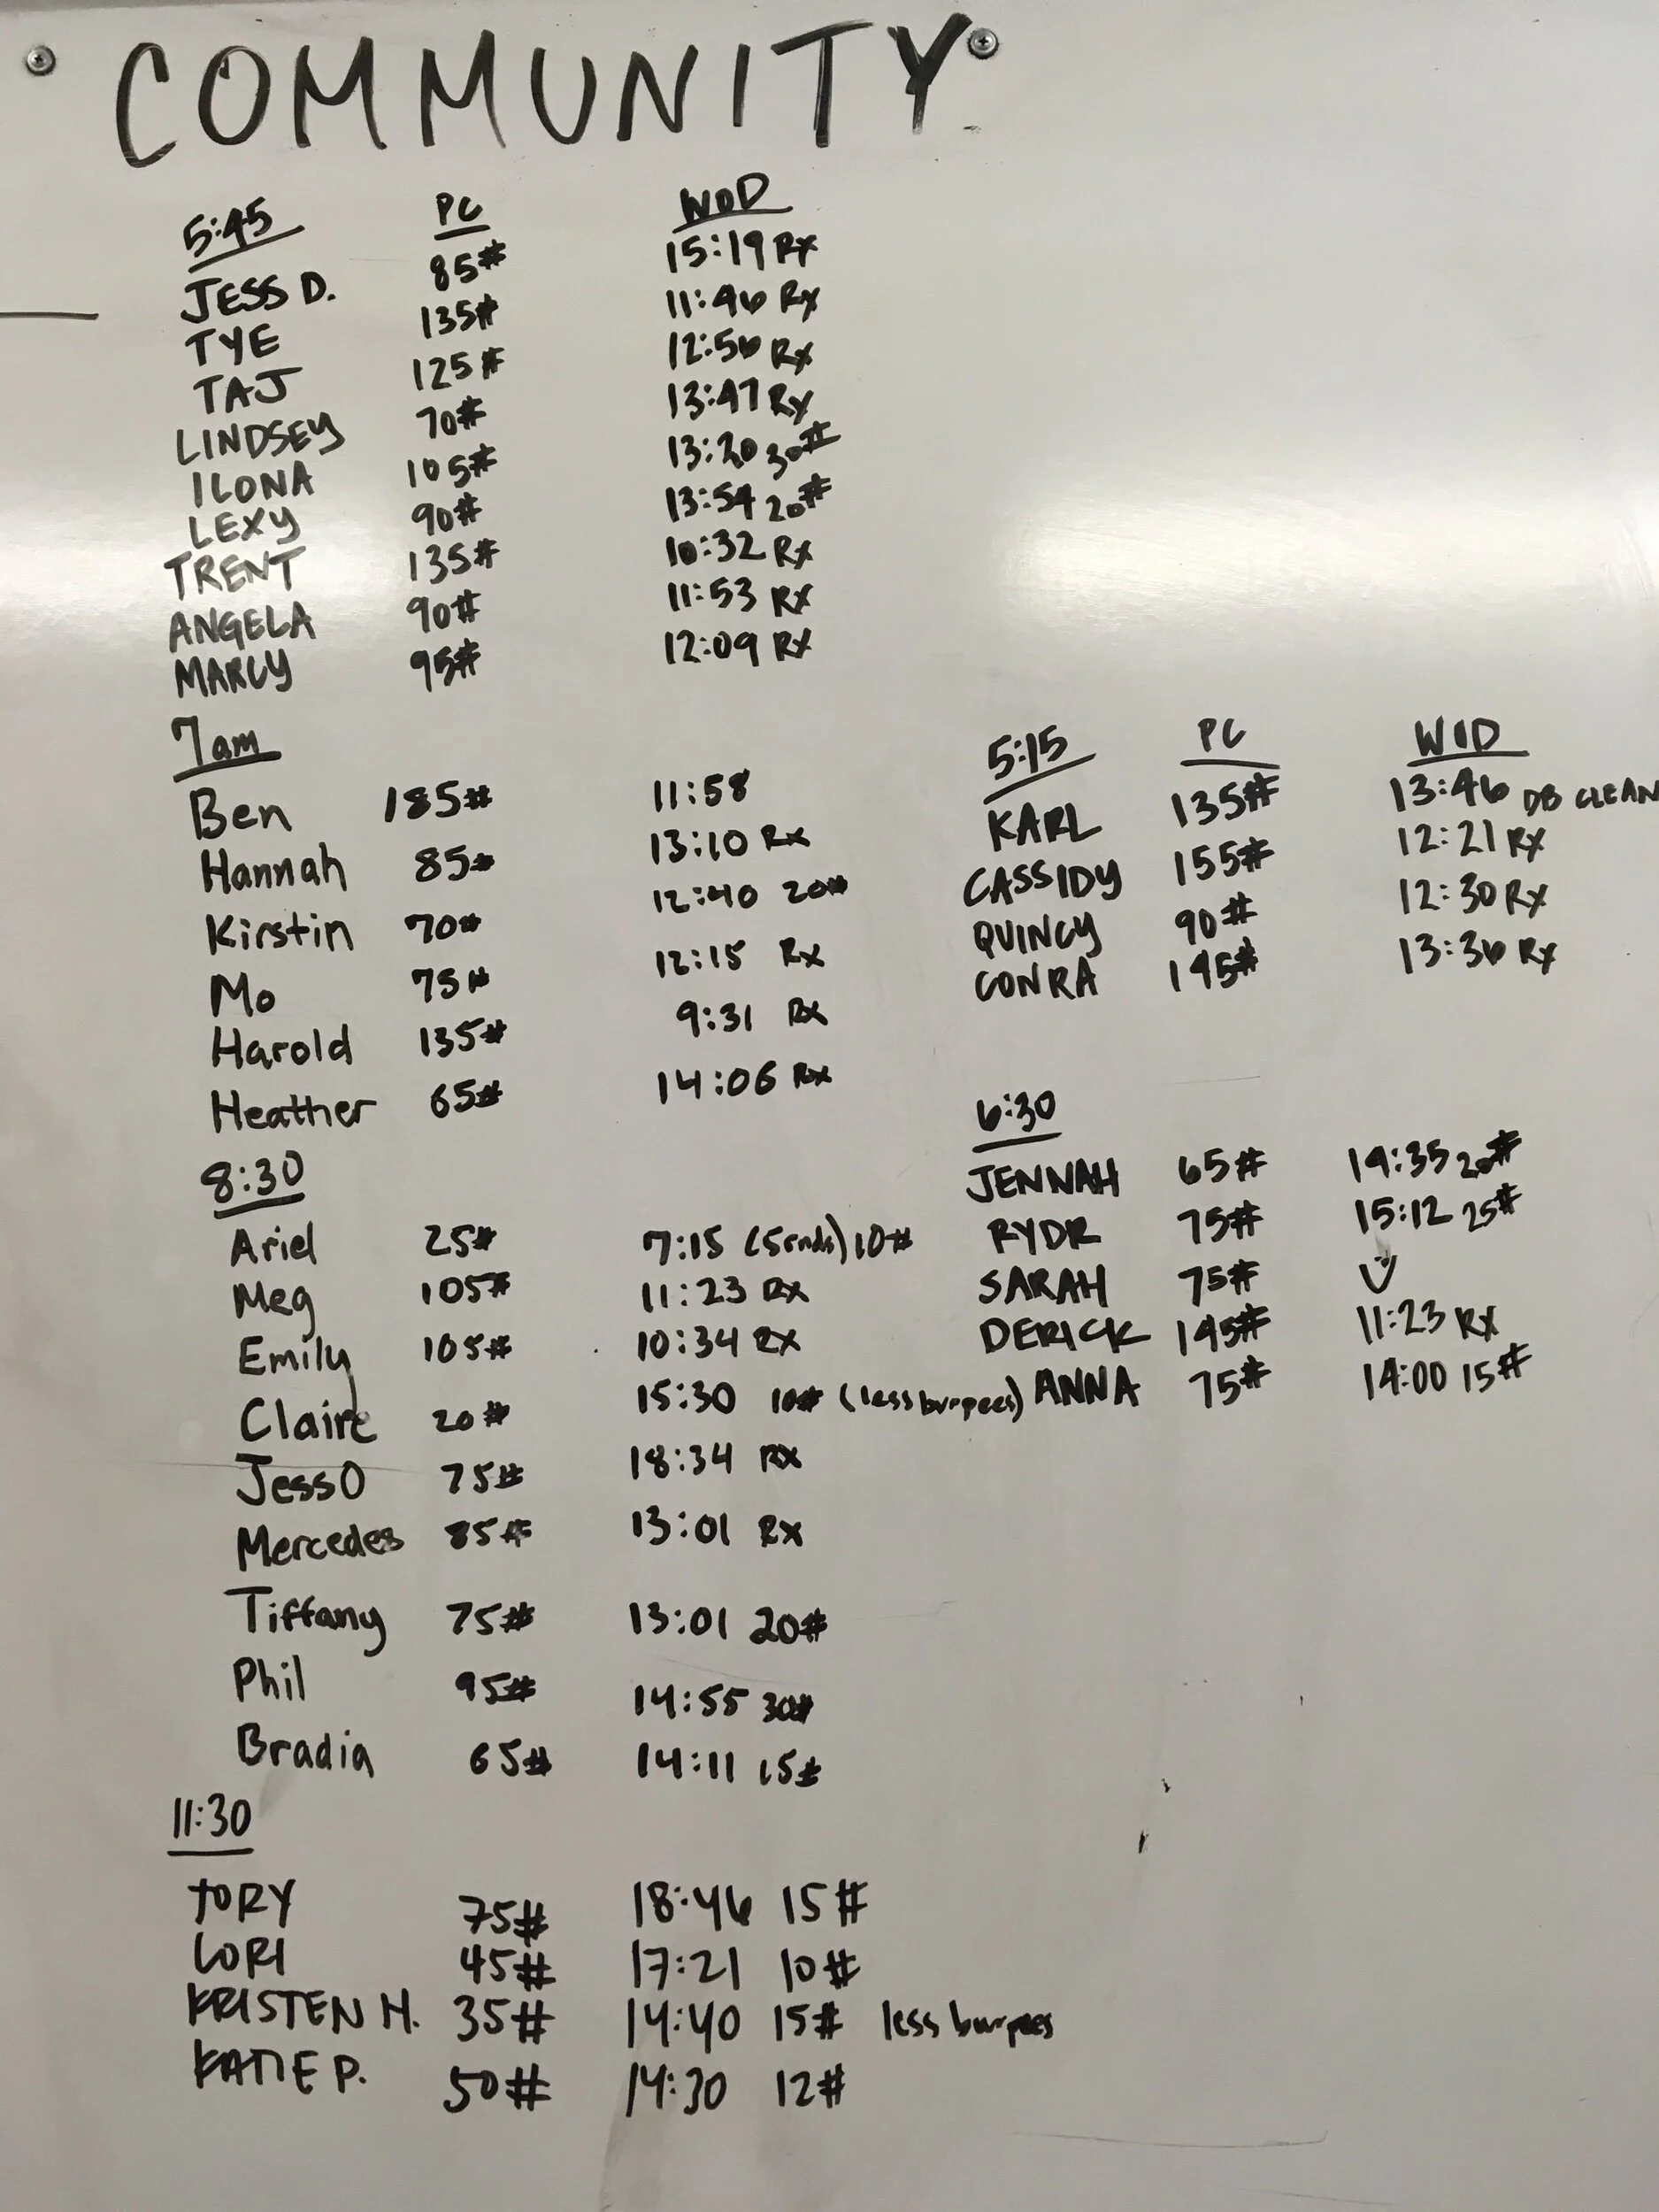 COMMUNITY
5:45 PC WOD
JESS D. 85# 15:19 Rx
TYE 135# 11:46 Rx
TAJ 125# 12:56 Rx
LINDSEY 70# 13:47 Rx
ILONA 105# 13:20 30#
LEXY 90# 13:54 20#
TRENT 135# 10:32 Rx
ANGELA 90# 11:53 Rx
MARCY 95# 12:09 Rx
7am
Ben 185# 11:58
Hannah 85# 13:10 Rx
Kirstin 70# 12:40 20#
Mo 75# 12:15 Rx
Harold 135# 9:31 Rx
Heather 65# 14:06 Rx
8:30
Ariel 25# 7:15 (5rnds) 10#
Meg 105# 11:23 Rx
Emily 105# 10:34 Rx
Claire 20# 15:30 10# (less burpees)
Jess O 75# 18:34 Rx
Mercedes 85# 13:01 Rx
Tiffany 75# 13:01 20#
Phil 95# 14:55 30#
Bradia 65# 14:11 15#
11:30
TORY 75# 18:46 15#
LORI 45# 17:21 10#
KRISTEN H. 35# 14:40 15# less burpees
KATIE P. 50# 14:30 12#
5:15 PC WOD
KARL 135# 13:46 DB CLEAN
CASSIDY 155# 12:21 Rx
QUINCY 90# 12:30 Rx
CONRA 145# 13:36 Rx
6:30
JENNAH 65# 14:35 20#
RYDR 75# 15:12 25#
SARAH 75#
DERICK 145# 11:23 Rx
ANNA 75# 14:00 15#